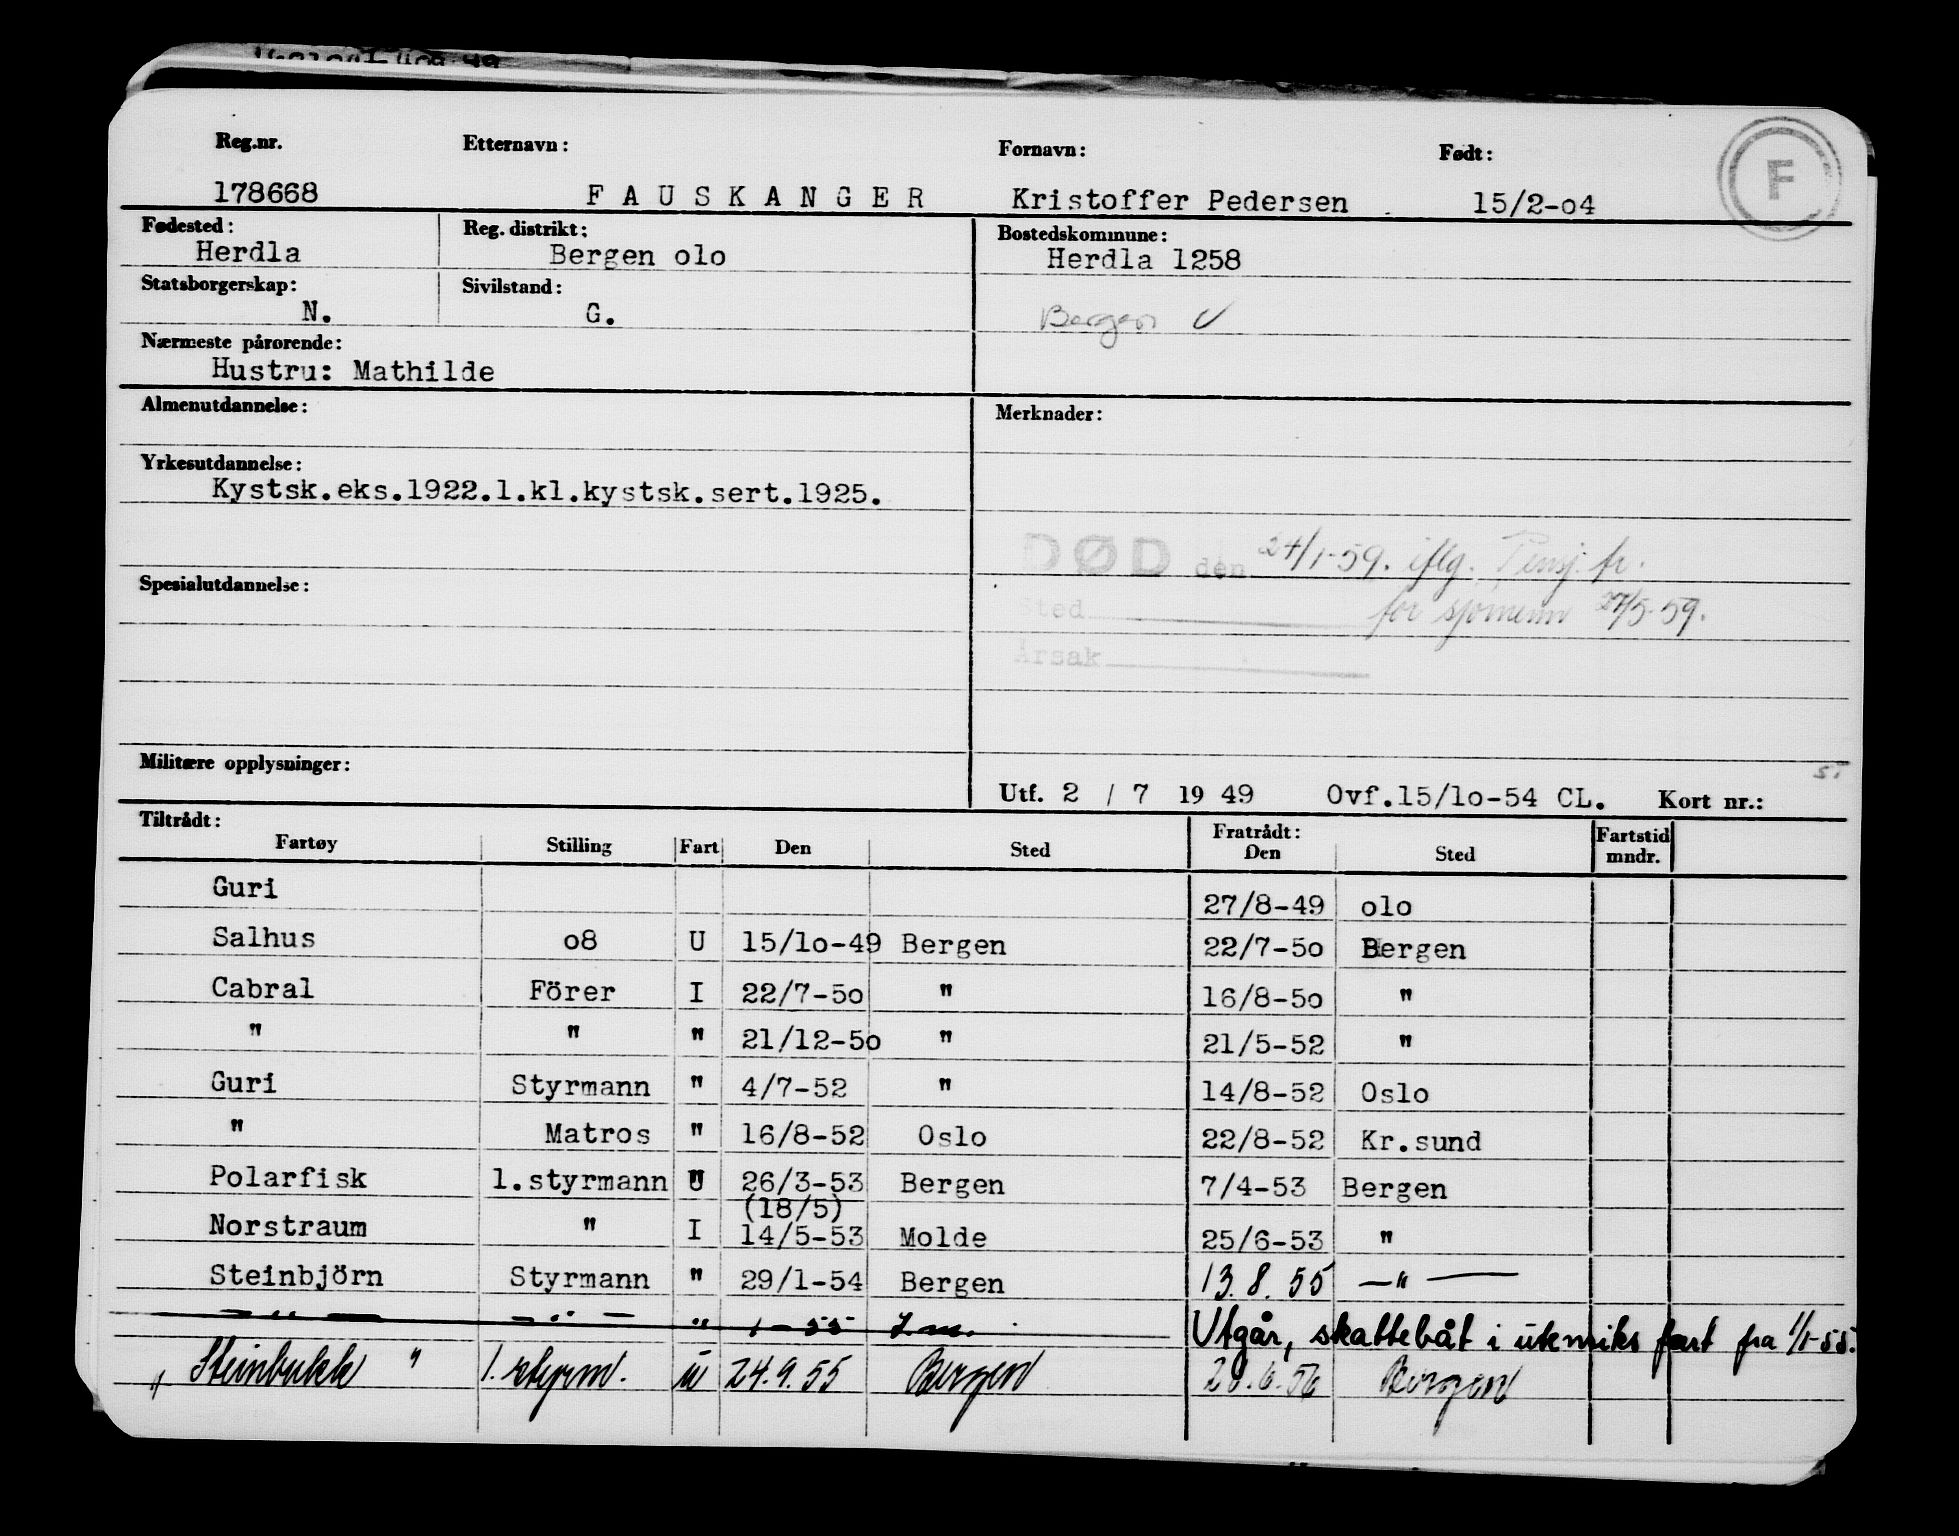 Reg.nr. Etternavn: Fornavn: Født: F
178668 F A U S K A N G E R Kristoffer Pedersen 15/2-o4
Fødested: Reg. distrikt: Bostedskommune:
Herdla Bergen olo Herdla 1258
Statsborgerskap: Sivilstand:
N. G. Bergen
Nærmeste pårørende:
Hustru: Mathilde
Almenutdannelse: Merknader:
Yrkesutdannelse:
Kystsk.eks.1922.1.kl.kystsk.sert.1925.
DØD den 24/1-59. iflg. Pensj. tr.
Spesialutdannelse:
Sted for sjømenn 27/5-59.
Årsak
Militære opplysninger:
Utf. 2 / 7 19 49 Ovf.15/1o-54 CL. Kort nr.:
Tiltrådt: Fratrådt: Fartstid
Fartøy Stilling Fart Den Sted Den Sted mndr.
Guri 27/8-49 olo
Salhus o8 U 15/1o-49 Bergen 22/7-5o Bergen
Cabral Förer I 22/7-5o " 16/8-5o "
" " " 21/12-5o " 21/5-52 "
Guri Styrmann " 4/7-52 " 14/8-52 Oslo
" Matros " 16/8-52 Oslo 22/8-52 Kr.sund
Polarfisk 1.styrmann U 26/3-53 Bergen 7/4-53 Bergen
(18/5)
Norstraum " I 14/5-53 Molde 25/6-53 "
Steinbjörn Styrmann " 29/1-54 Bergen 13.8.55 —"—
—"— —"— " 1-55 Utgår, skattebåt i utenriks fart fra 1/1-55.
" Steinbukk " 1. styrm. u 24.9.55 Bergen 28.6.56 Bergen